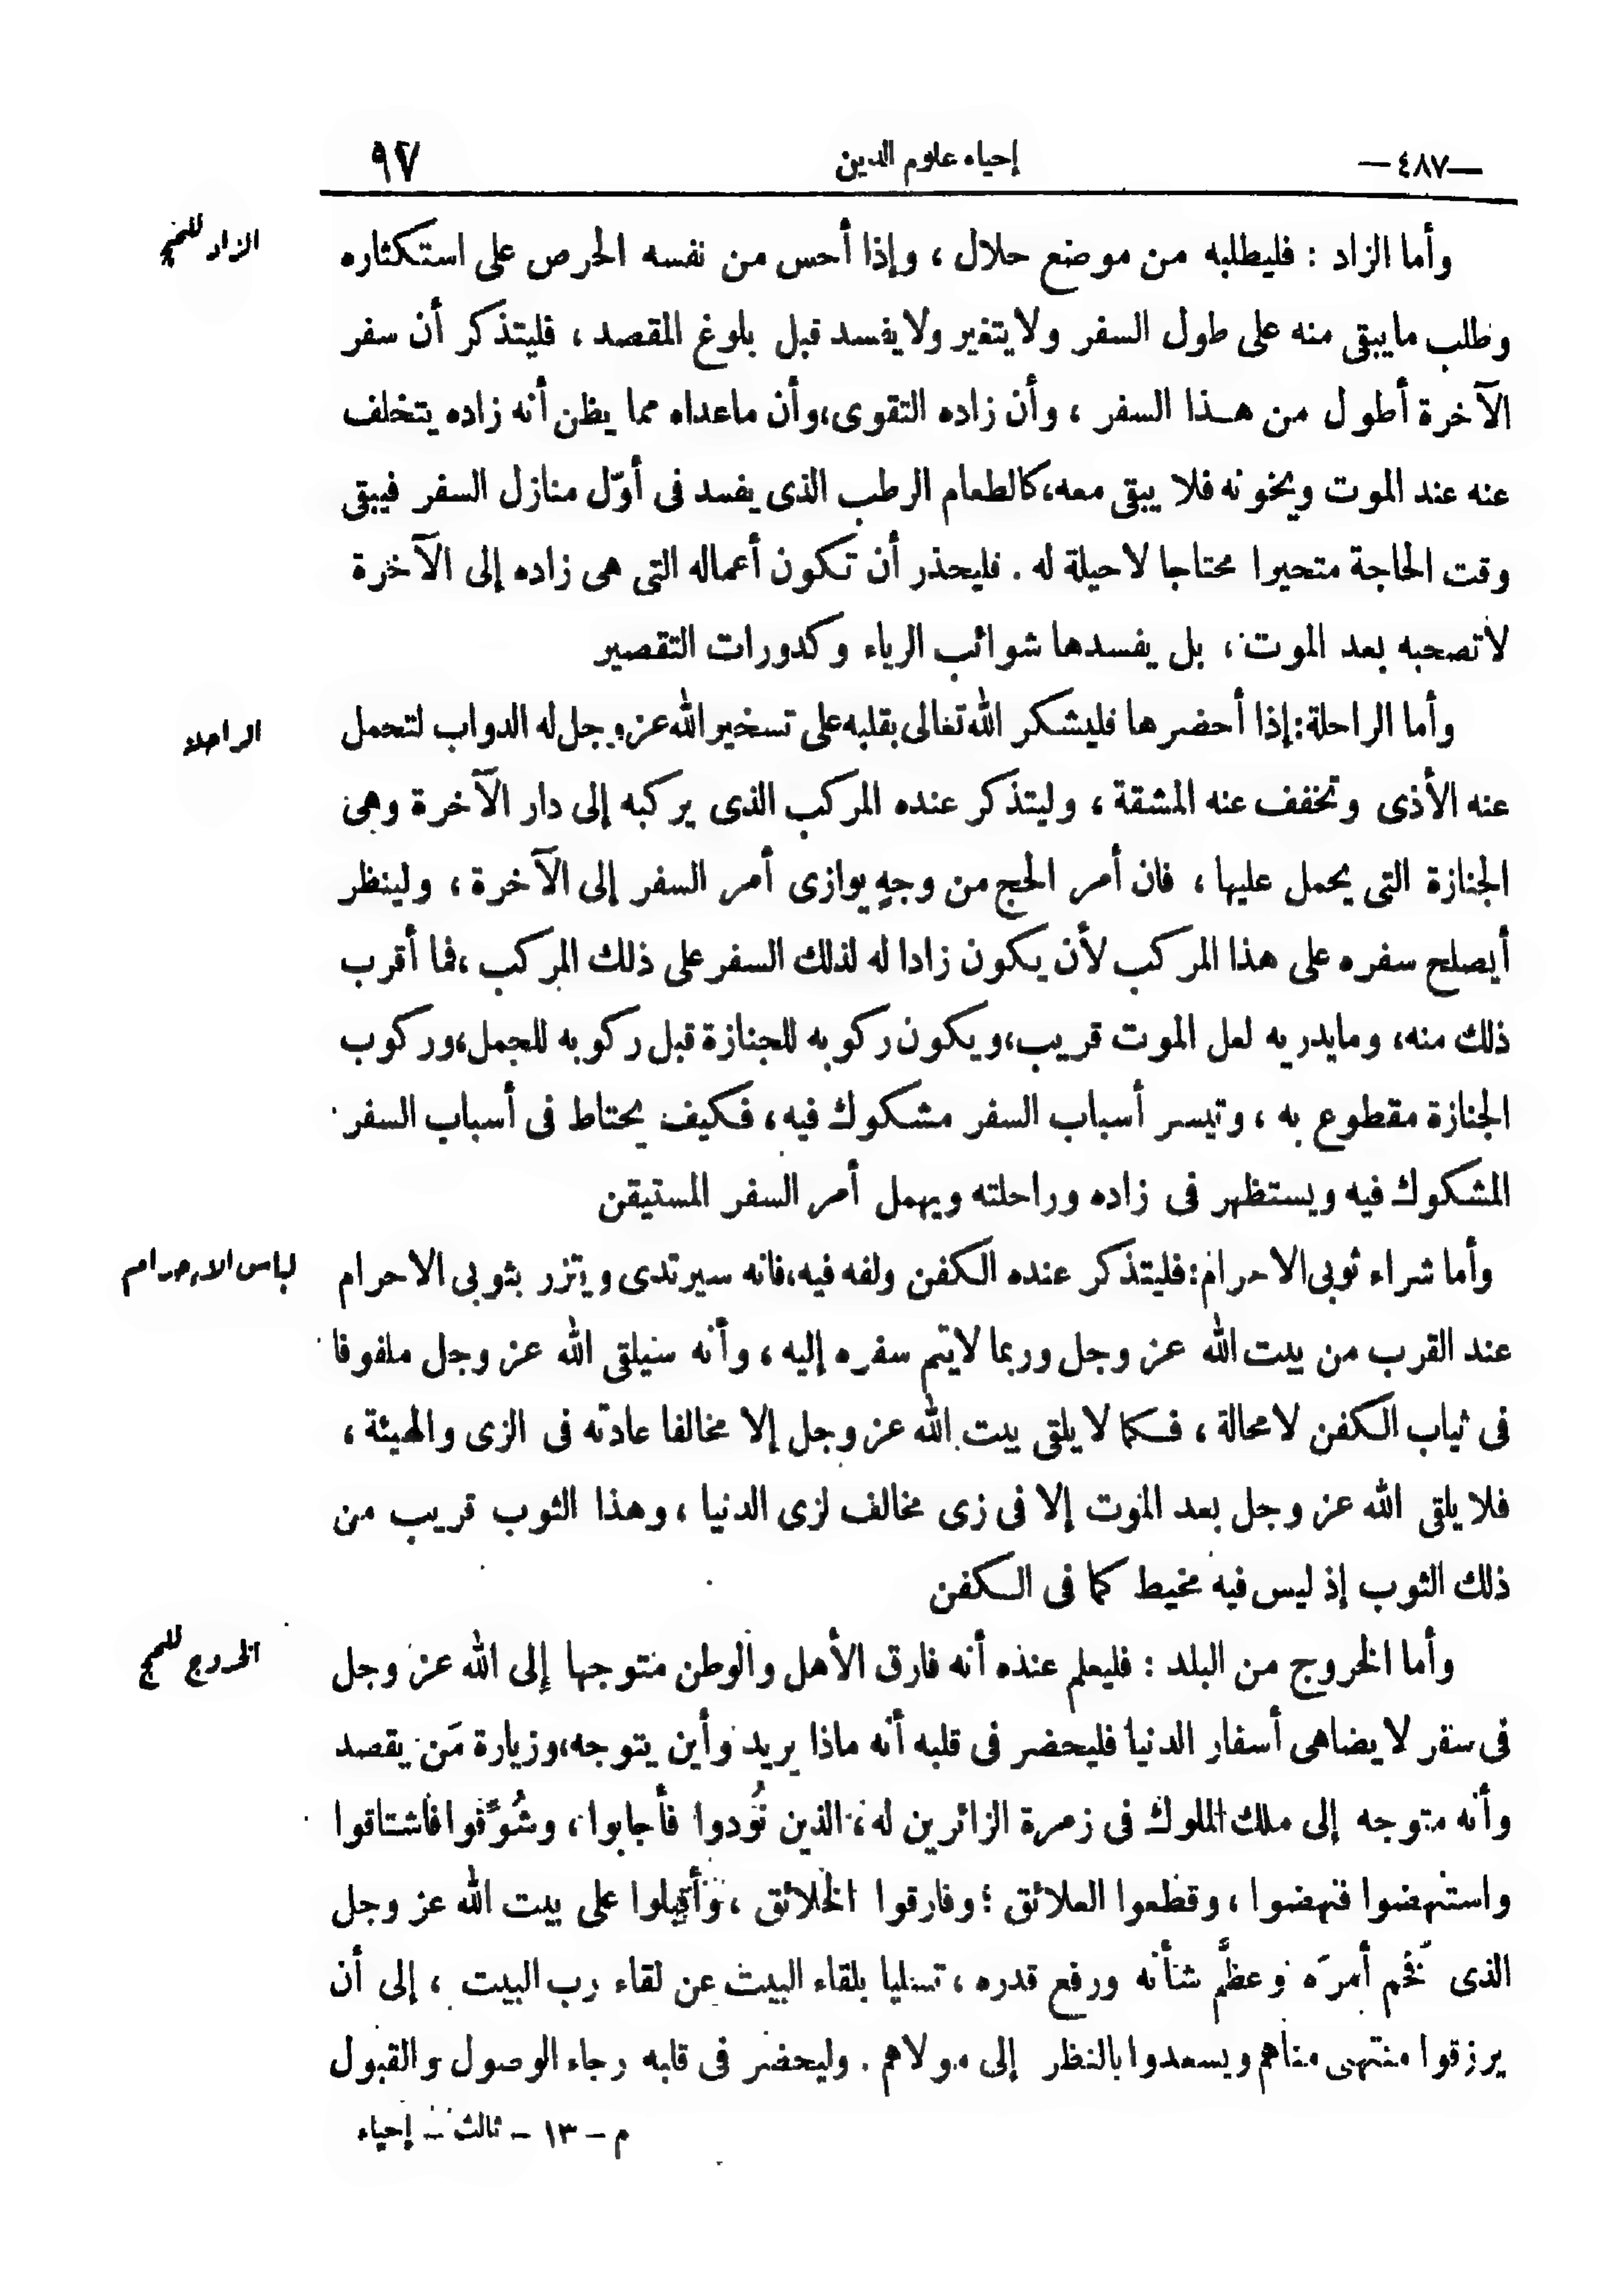 —٤٨٧— إحياء علوم الدين ٩٧
الزاد للحج
وأما الزاد : فليطلبه من موضع حلال ، وإذا أحس من نفسه الحرص على استكثاره
وطلب مايبقى منه على طول السفر ولايتغير ولايفسد قبل بلوغ المقصد ، فليتذكر أن سفر
الآخرة أطول من هذا السفر ، وأن زاده التقوى،وأن ماعداه مما يظن أنه زاده يتخلف
عنه عند الموت ويخونه فلا يبقى معه،كالطعام الرطب الذى يفسد فى أوّل منازل السفر فيبقى
وقت الحاجة متحيرا محتاجا لاحيلة له . فليحذر أن تكون أعماله التى هى زاده إلى الآخرة
لاتصحبه بعد الموت ، بل يفسدها شوائب الرياء وكدورات التقصير
الراحلة
وأما الراحلة:إذا أحضرها فليشكر الله تعالى بقلبه على تسخير الله عز وجل له الدواب لتحمل
عنه الأذى وتخفف عنه المشقة ، وليتذكر عنده المركب الذى يركبه إلى دار الآخرة وهى
الجنازة التى يحمل عليها ، فان أمر الحج من وجهٍ يوازى أمر السفر إلى الآخرة ، ولينظر
أيصلح سفره على هذا المركب لأن يكون زادا له لذلك السفر على ذلك المركب ،فما أقرب
ذلك منه، ومايدريه لعل الموت قريب،ويكون ركوبه للجنازة قبل ركوبه للجمل،وركوب
الجنازة مقطوع به ، وتيسر أسباب السفر مشكوك فيه ، فكيف يحتاط فى أسباب السفر
المشكوك فيه ويستظهر فى زاده وراحلته ويهمل أمر السفر المستيقن
لباس الاحرام
وأما شراء ثوبى الاحرام:فليتذكر عنده الكفن ولفه فيه،فانه سيرتدى ويتزر بثوبى الاحرام
عند القرب من بيت الله عز وجل وربما لايتم سفره إليه ، وأنه سيلقى الله عز وجل ملفوفا
فى ثياب الكفن لامحالة ، فكما لايلقى بيت الله عز وجل إلا مخالفا عادته فى الزى والهيئة ،
فلا يلقى الله عز وجل بعد الموت إلا فى زى مخالف لزى الدنيا ، وهذا الثوب قريب من
ذلك الثوب إذ ليس فيه مخيط كما فى الكفن
الخروج للحج
وأما الخروج من البلد : فليعلم عنده أنه فارق الأهل والوطن متوجها إلى الله عز وجل
فى سفر لايضاهى أسفار الدنيا فليحضر فى قلبه أنه ماذا يريد وأين يتوجه،وزيارة مَن يقصد
وأنه متوجه إلى ملك الملوك فى زمرة الزائرين له ، الذين نُودوا فأجابوا ، وشُوِّقوا فاشتاقوا
واستنهضوا فنهضوا ، وقطعوا العلائق ؛ وفارقوا الخلائق ، وأقبلوا على بيت الله عز وجل
الذى فخَّم أمرَه وعظَّم شأنه ورفع قدره ، تسليا بلقاء البيت عن لقاء رب البيت ، إلى أن
يرزقوا منتهى مناهم ويسعدوا بالنظر إلى مولاهم . وليحضر فى قلبه رجاء الوصول والقبول
م – ١٣ – ثالث – إحياء